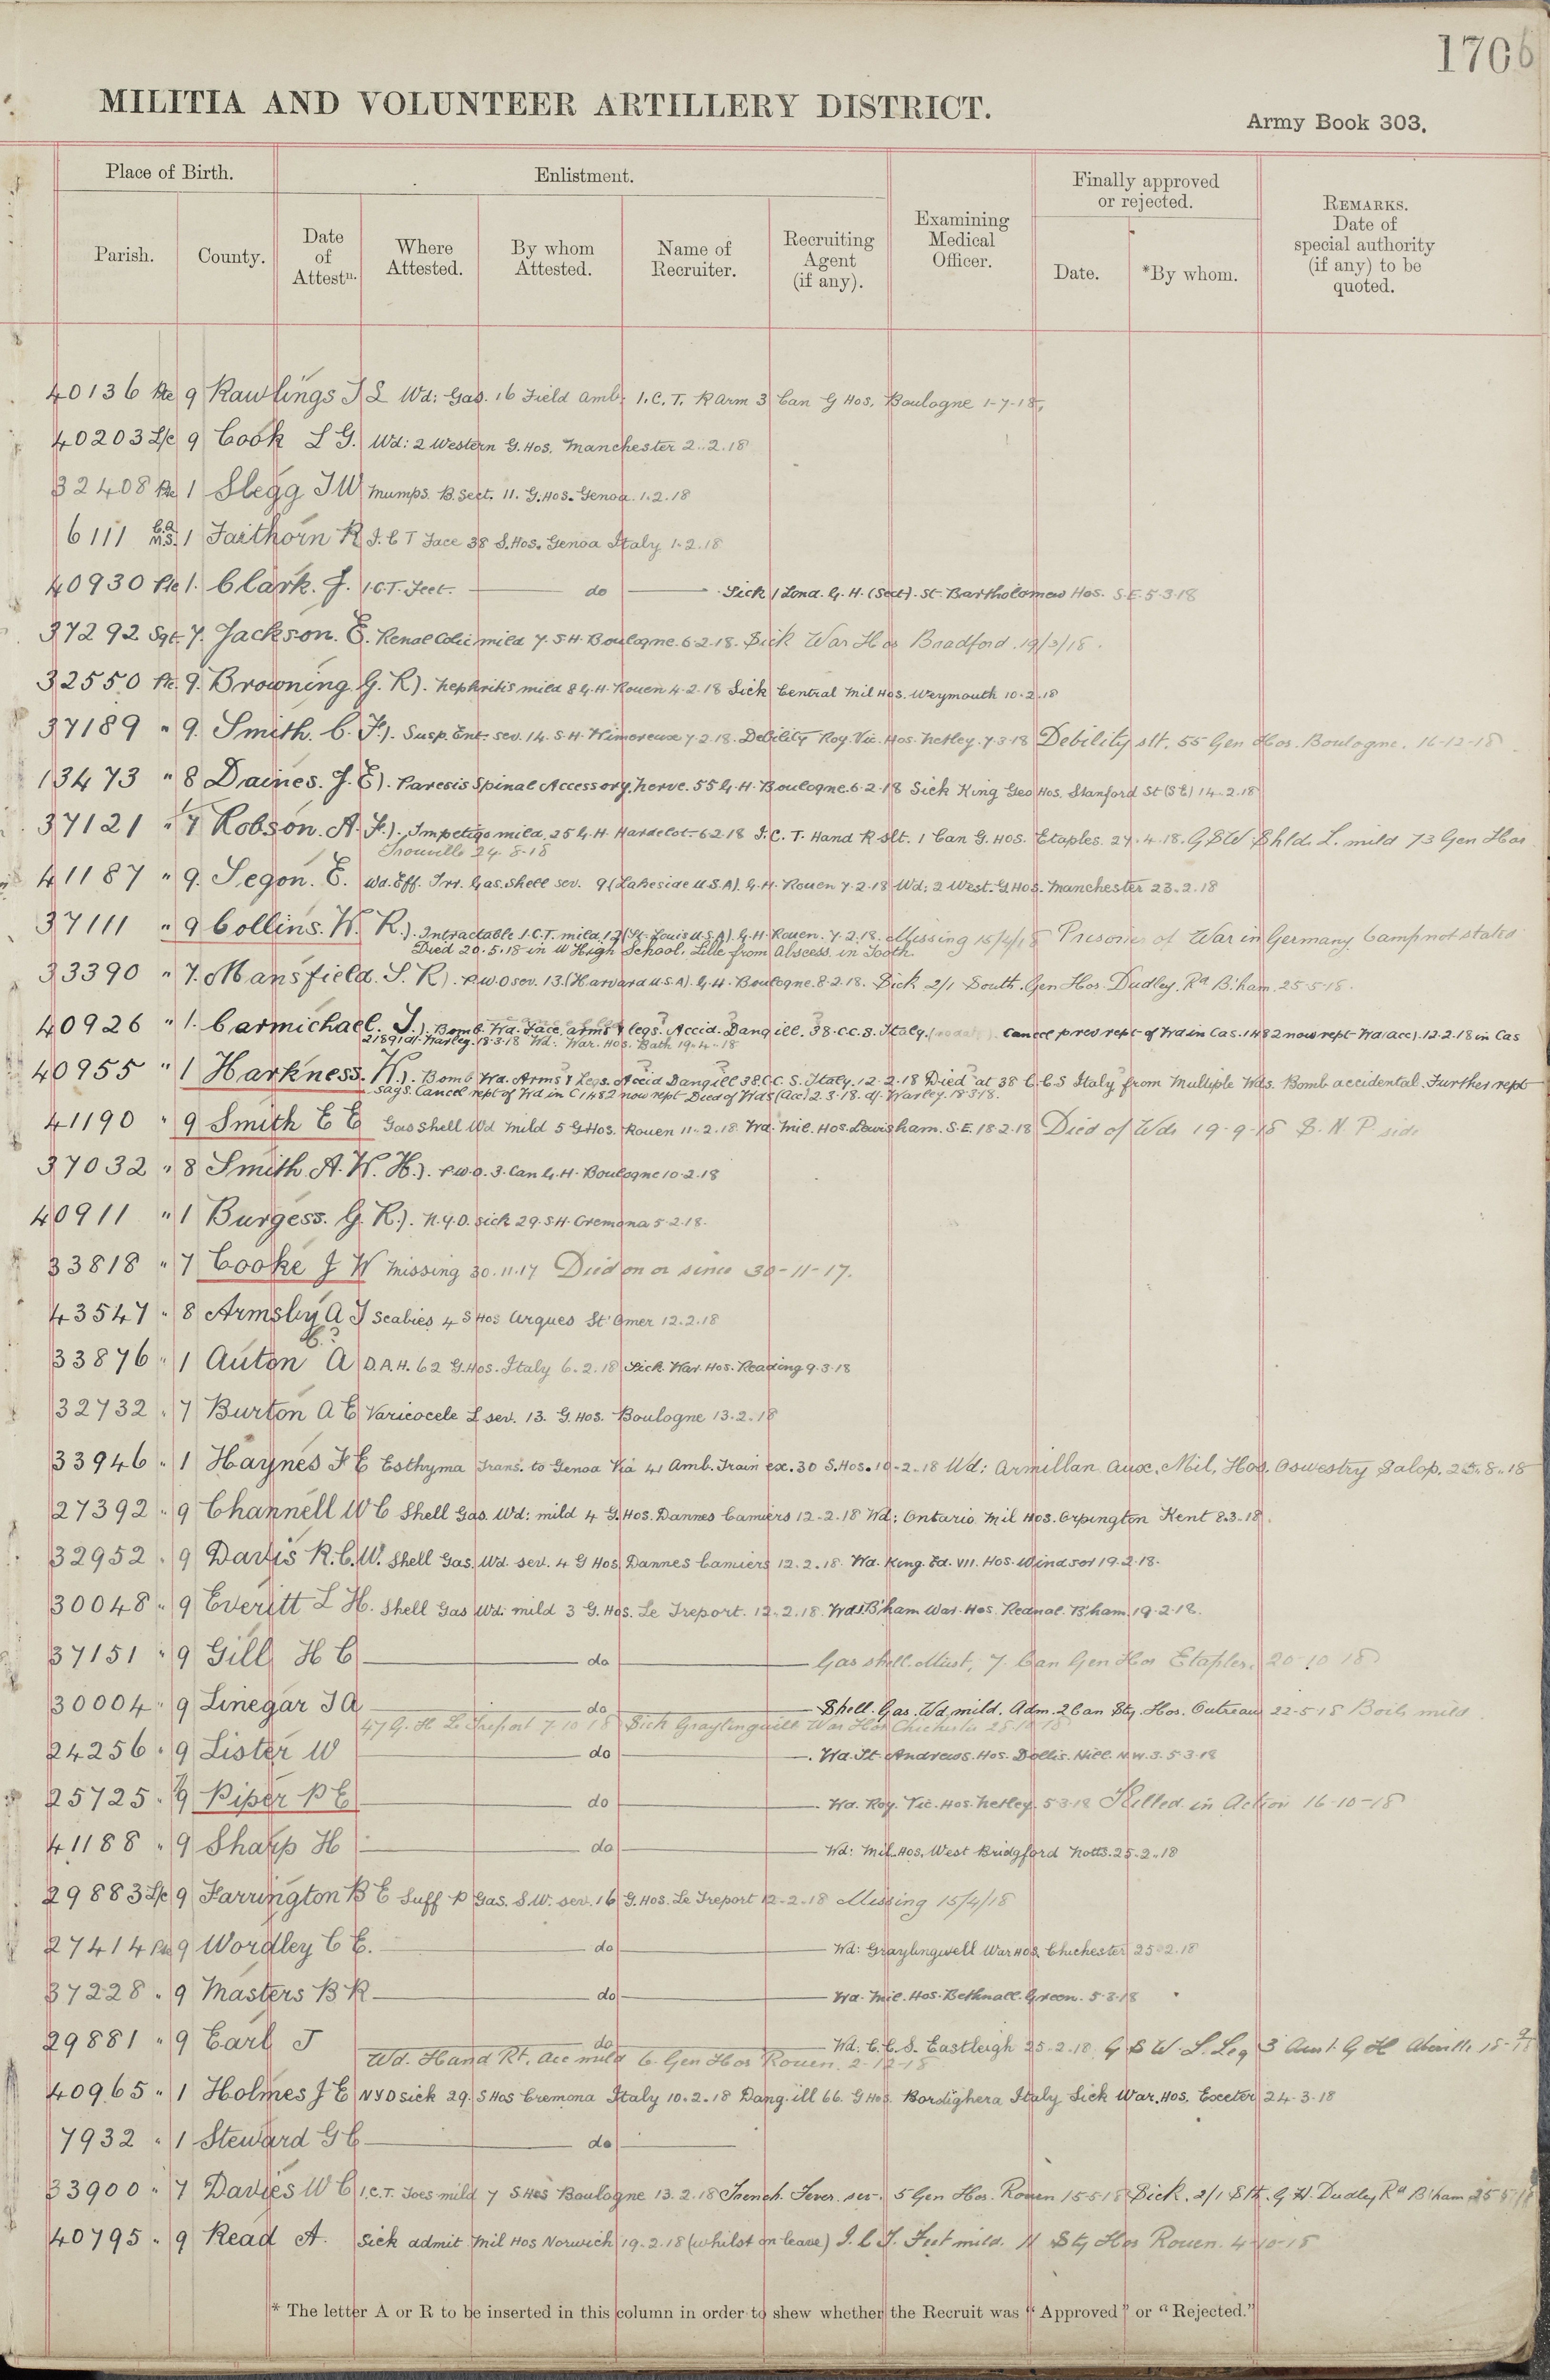 1706
MILITIA AND VOLUNTEER ARTILLERY DISTRICT.
Army Book 303.
Place of Birth.
Enlistment.
Finally approved
or rejected.
Parish.
County.
Date
of
Attestn.
Where
Attested.
By whom
Attested.
Name of
Recruiter.
Recruiting
Agent
(if any).
Examining
Medical
Officer.
Date.
*By whom.
REMARKS.
Date of
special authority
(if any) to be
quoted.
40136 Pte 9 Rawlings J S Wd: Gas. 16 Field Amb: I.C.T. R Arm 3 Can G Hos. Boulogne 1-7-18.
40203 L/c 9 Cook L G. Wd: 2 Western G. Hos. Manchester 2.2.18
32408 Pte 1 Slegg J W Mumps. B. Sect. 11. G. Hos. Genoa. 1.2.18
6111 C.Q.M.S. 1 Faithorn R I.C.T Face 38 S. Hos. Genoa Italy 1.2.18
40930 Pte 1. Clark. J. I.C.T. Feet. do Sick 1 Lond. G. H. (Sect). St. Bartholomew Hos. S.E. 5.3.18
37292 Sgt. 7. Jackson. E. Renal Colic mild 7. S.H. Boulogne. 6.2.18. Sick War Hos Bradford. 19/3/18.
32550 Pte. 9. Browning. G. R). Nephritis mild 8 G. H. Rouen 4.2.18 Sick Central Mil Hos. Weymouth 10.2.18
37189 " 9. Smith. C. F.). Susp. Ent. sev. 14. S.H. Wimereux 7.2.18. Debility Roy. Vic. Hos. Netley. 7.3.18 Debility slt. 55 Gen Hos. Boulogne. 16-12-18
13473 " 8 Daines. J. E). Paresis Spinal Accessory. Nerve. 55 G. H. Boulogne. 6.2.18 Sick King Geo Hos. Stanford St (S E) 14.2.18
37121 " 7 Robson. A. F.). Impetigo mild. 25 G. H. Hardelot. 6.2.18 I.C.T. Hand R slt. 1 Can G. Hos. Etaples. 27.4.18. G S W Shld. L. mild 73 Gen Hos
Trouville 24.8.18
41187 " 9. Segon. E. Wd. Eff. Irr. Gas. Shell sev. 9 (Lakeside U.S.A). G. H. Rouen 7.2.18 Wd: 2 West. G Hos. Manchester 23.2.18
37111 " 9 Collins. W. R.). Intractable I.C.T. mild 12 (St. Louis U.S.A). G. H. Rouen. 7.2.18. Missing 15/4/18 Prisoner of War in Germany Camp not stated
Died 20.5.18 in W High School, Lille from Abscess in Tooth.
33390 " 7. Mansfield. S. R). P.U.O sev. 13. (Harvard U.S.A). G. H. Boulogne. 8.2.18. Sick 2/1 South. Gen Hos. Dudley. Rd B'ham. 25.5.18.
40926 " 1. Carmichael. J.). Bomb. Wd. Face, arms & legs. Accid. Dang ill. 38. C.C.S. Italy. Cancel prev rept of Wd in Cas. 1482 now rept Wd (acc) 12.2.18 in Cas
d/ Warley. 18.3.18 Wd: War. Hos. Bath 19.4.18
40955 " 1 Harkness. W.). Bomb Wd. Arms & Legs. Accid Dang ill 38. C.C.S. Italy. 12.2.18 Died at 38 C.C.S Italy from Multiple Wds. Bomb accidental. Further rept
says. Cancel rept of Wd in C 1482 now rept Died of Wds (Acc) 2.3.18. d/ Warley. 18.3.18.
41190 " 9 Smith E E Gas Shell Wd mild 5 G Hos. Rouen 11.2.18. Wd. Mil. Hos. Lewisham. S.E. 18.2.18 Died of Wds 19-9-18
37032 " 8 Smith. A. W. H.). P.U.O. 3. Can G. H. Boulogne 10.2.18
40911 " 1 Burgess. G. R.). N.Y.D. sick 29. S.H. Cremona 5.2.18.
33818 " 7 Cooke J W Missing 30.11.17 Died on or since 30-11-17.
43547 " 8 Armsby A J Scabies 4 S Hos Arques St Omer 12.2.18
33876 " 1 Auton A D.A.H. 62 G. Hos. Italy 6.2.18 Sick. War. Hos. Reading 9.3.18
32732 " 7 Burton A E Varicocele L sev. 13. G. Hos. Boulogne 13.2.18
33946 " 1 Haynes F E Esthyma Trans. to Genoa Via 41 Amb. Train ex. 30 S. Hos. 10.2.18 Wd: Armillan Aux. Mil. Hos. Oswestry Salop. 25.8.18
27392 " 9 Channell W C Shell Gas. Wd: mild 4 G. Hos. Dannes Camiers 12.2.18 Wd: Ontario Mil Hos. Orpington Kent 8.3.18.
32952 " 9 Davis R. C. W. Shell Gas. Wd. sev. 4 G Hos. Dannes Camiers 12.2.18. Wd. King. Ed. VII. Hos. Windsor 19.2.18.
30048 " 9 Everitt L H. Shell Gas Wd: mild 3 G. Hos. Le Treport. 12.2.18. Wd 1 B'ham War. Hos. Rednal. B'ham. 19.2.18.
37151 " 9 Gill H C do Gas shell. 7. Can Gen Hos Etaples. 20-10-18
30004 " 9 Linegar J A do Shell. Gas. Wd. mild. Adm. 2 Can Sty. Hos. Outreau 22-5-18 Boils mild
47 G. H. Le Treport 7-10-18 Sick Graylingwell War Hos Chichester
24256 " 9 Lister W do Wd. St. Andrews. Hos. Dollis. Hill. N.W. 3. 5.3.18
25725 " 9 Piper P E do Wd. Roy. Vic. Hos. Netley. 5.3.18 Killed in Action 16-10-18
41188 " 9 Sharp H do Wd: Mil. Hos. West Bridgford Notts. 25.2.18
29883 L/c 9 Farrington B E Suff. fr Gas. S.W. sev. 16 G. Hos. Le Treport 12.2.18 Missing 15/4/18
27414 Pte 9 Wordley C E. do Wd: Graylingwell War Hos. Chichester 25.2.18
37228 " 9 Masters B R do Wd. Mil. Hos. Bethnall. Green. 5.3.18
29881 " 9 Earl J do Wd. C.C.S. Eastleigh 25.2.18. G S W. L. Leg 3 Aust. G H Abbeville
Wd. Hand Rt. acc mild 6 Gen Hos Rouen. 2-12-18
40965 " 1 Holmes J E NYD sick 29. S Hos Cremona Italy 10.2.18 Dang. ill 66. G Hos. Bordighera Italy Sick War. Hos. Exeter 24.3.18
7932 " 1 Steward G C do
33900 " 7 Davies W C I.C.T. Toes mild 7 S Hos Boulogne 13.2.18 Trench. Fever. sev. 5 Gen Hos. Rouen 15.5.18 Sick. 2/1 Sth. G H. Dudley Rd B'ham 25.5.18
40795 " 9 Read A. Sick admit Mil Hos Norwich 19.2.18 (whilst on leave) I.C.T. Feet mild. 11 Sty Hos Rouen. 4-10-18
* The letter A or R to be inserted in this column in order to shew whether the Recruit was "Approved" or "Rejected."